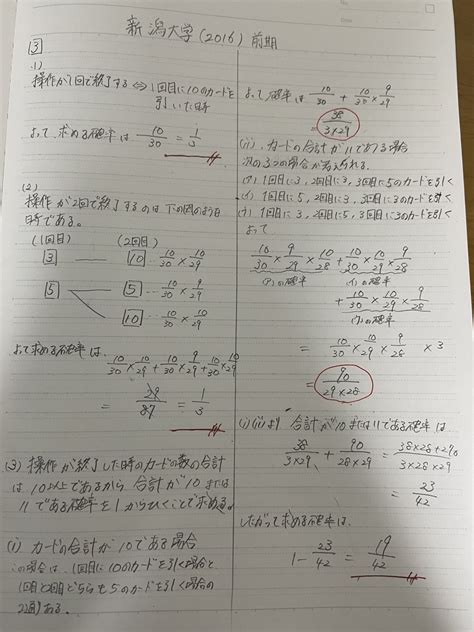 新潟大学 (2016) 前期
3
(1)
操作が1回で終了する ⇔ 1回目に10のカードを
引いた時
よって 求める確率は 10/30 = 1/3
(2)
操作が2回で終了するのは 下の図のような
時である。
(1回目) (2回目)
3 — 10 … 10/30 × 10/29
5 — 5 … 10/30 × 9/29
10 … 10/30 × 10/29
よって求める確率は、
10/30 × 10/29 + 10/30 × 9/29 + 10/30 × 10/29
= 29/87 = 1/3
(3) 操作が終了した時のカードの数の合計
は10以上であるから 合計が10または
11である確率を1からひくことで求める。
(i) カードの合計が10である場合
この場合は、1回目に10のカードを引く場合と
1回目と2回目どちらも5のカードを引く場合の
2通りある。
よって 確率は 10/30 + 10/30 × 9/29
= 38/3×29
(ii) カードの合計が11である場合
次の3つの場合が考えられる。
(ア) 1回目に3, 2回目に3, 3回目に5のカードを引く
(イ) 1回目に5, 2回目に3, 3回目に3のカードを引く
(ウ) 1回目に3, 2回目に5, 3回目に3のカードを引く
よって
10/30 × 9/29 × 10/28 + 10/30 × 10/29 × 9/28
(ア)の確率 (イ)の確率
+ 10/30 × 10/29 × 9/28
(ウ)の確率
= 10/30 × 10/29 × 9/28 × 3
= 90/29×28
(i)(ii)より 合計が10または11である確率は
38/3×29 + 90/28×29 = 38×28+270/3×28×29
= 23/42
したがって求める確率は、
1 - 23/42 = 19/42